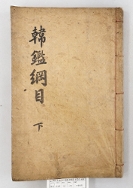 韓鑑綱目
下